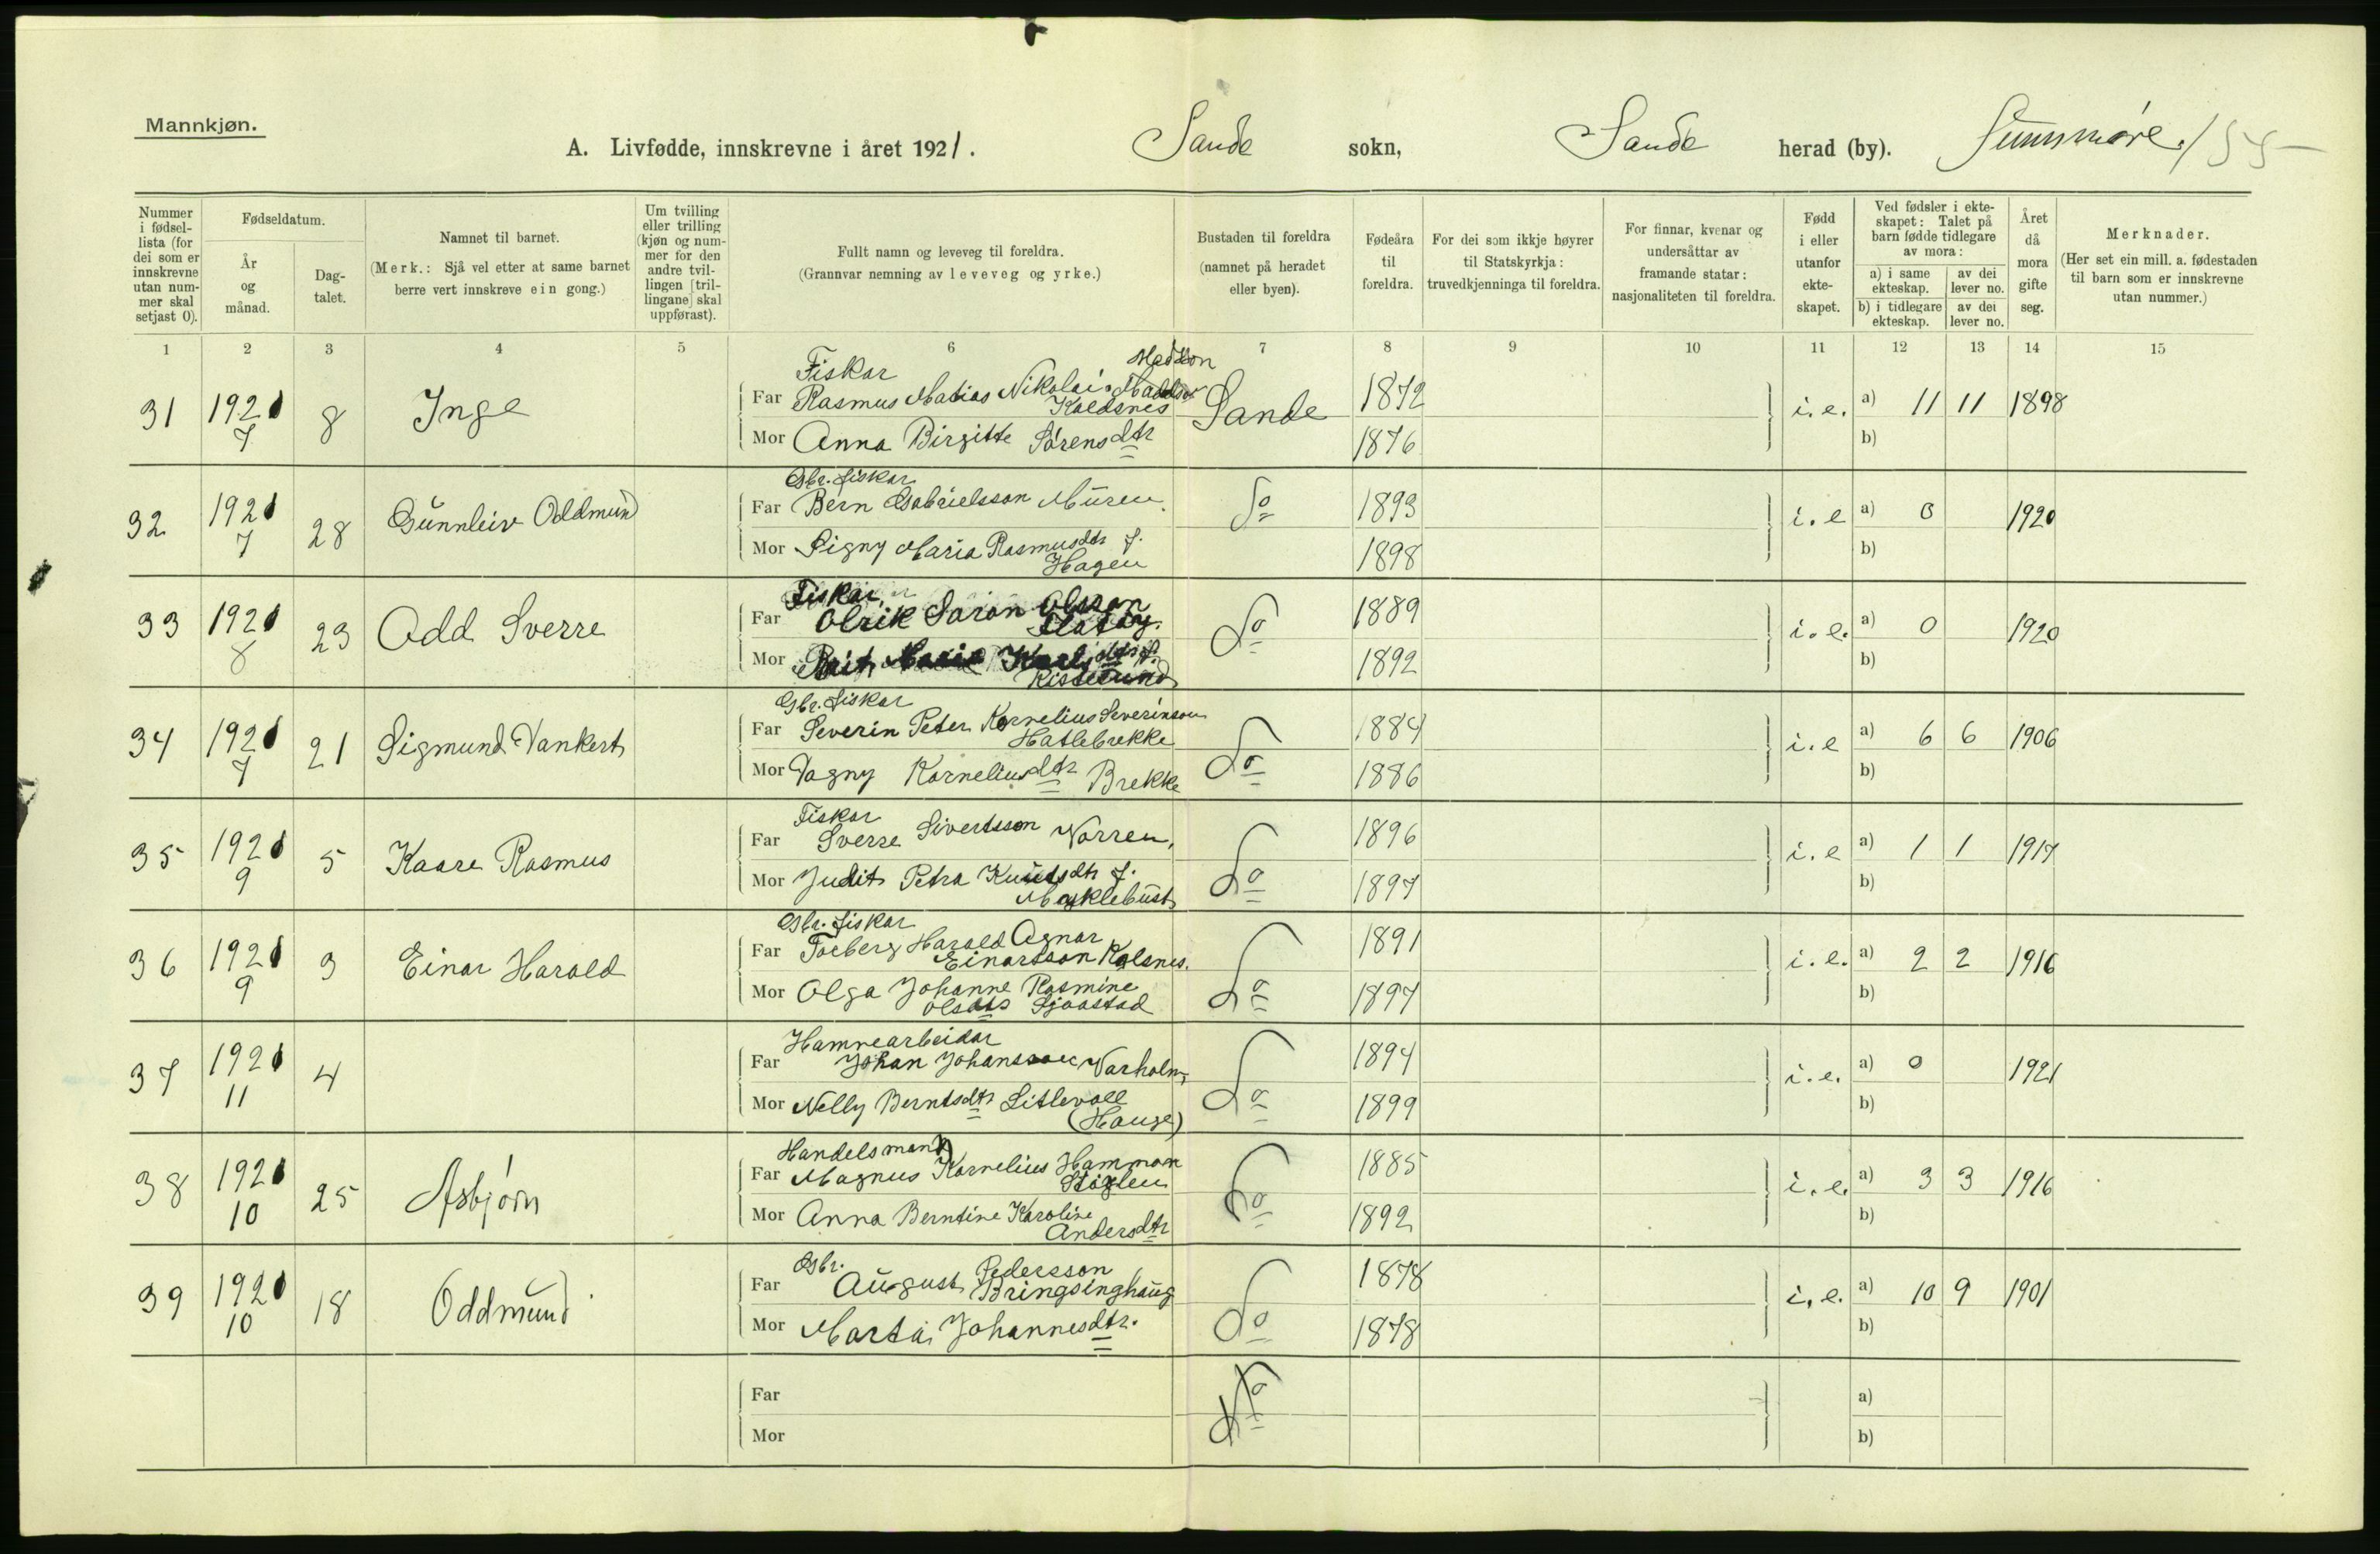 Mannkjøn.
A. Livfødde, innskrevne i året 1921. Sande sokn, Sande herad (by). Sunnmøre. 155
Nummer i fødsel-lista (for dei som er innskrevne utan num-mer skal setjast 0).
Fødseldatum.
År og månad.
Dag-talet.
Namnet til barnet.
(Merk.: Sjå vel etter at same barnet berre vert innskreve ein gong.)
Um tvilling eller trilling (kjøn og num-mer for den andre tvil-lingen [tril-lingane] skal uppførast).
Fullt namn og leveveg til foreldra.
(Grannvar nemning av leveveg og yrke.)
Bustaden til foreldra (namnet på heradet eller byen).
Fødeåra til foreldra.
For dei som ikkje høyrer til Statskyrkja: truvedkjenninga til foreldra.
For finnar, kvenar og undersåttar av framande statar: nasjonaliteten til foreldra.
Fødd i eller utanfor ekte-skapet.
Ved fødsler i ekte-skapet: Talet på barn fødde tidlegare av mora:
a) i same ekteskap. av dei lever no.
b) i tidlegare ekteskap. av dei lever no.
Året då mora gifte seg.
Merknader.
(Her set ein mill. a. fødestaden til barn som er innskrevne utan nummer.)
1 2 3 4 5 6 7 8 9 10 11 12 13 14 15
Fiskar Madsson
31 1921 7 8 Inge Far Rasmus Matias Nikolai Koldsnes Sande 1872 i.e. a) 11 11 1898
Mor Anna Birgitte Sørensdtr 1876 b)
Gbr. fiskar
32 1921 7 28 Gunnleiv Oddmund Far Bern Gabrielsson Muren. Do 1893 i.e a) 0 1920
Mor Signy Maria Rasmusdtr f. Hagen 1898 b)
Fiskar
33 1921 8 23 Odd Sverre Far Olrik Saron Olsson Flatøy. Do 1889 i.e. a) 0 1920
Mor Marie Karlsdtr f. 1892 b)
Gbr. fiskar
34 1921 7 21 Sigmund Vankert Far Severin Peter Kornelius Severinson Hatlebrekke Do 1884 i.e a) 6 6 1906
Mor Dagny Korneliusdtr Brekke 1886 b)
Fiskar
35 1921 9 5 Kaare Rasmus Far Sverre Sivertsson Norren. Do 1896 i.e a) 1 1 1917
Mor Judit Petra Knutsdtr f. Myklebust 1897 b)
Gbr. fiskar
36 1921 9 3 Einar Harald Far Torberg Harald Agnar Einarsson Kolsnes. Do 1891 i.e. a) 2 2 1916
Mor Olga Johanne Rasmine Olsdtr Sjaastad 1897 b)
Hamnearbeidar
37 1921 11 4 Far Johan Johansson Varholm, Do 1894 i.e. a) 0 1921
Mor Nelly Berntsdtr Litlevoll (Hauge) 1899 b)
Handelsmann
38 1921 10 25 Asbjørn Far Magnus Kornelius Hammon Støylen Do 1885 i.e. a) 3 3 1916
Mor Anna Berntine Karoline Andersdtr 1892 b)
Gbr.
39 1921 10 18 Oddmund Far August Pedersson Bringsinghaug Do 1878 i.e. a) 10 9 1901
Mor Marta Johannesdtr. 1878 b)
Far Do a)
Mor b)